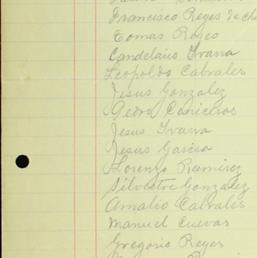 Francisco Reyes de
Tomas Rojeo
Candelario Ivana
Leopoldo Cabrales
Jesus Gonzalez
Pedro Caniceros
Jesus Ivana
Jesus Garcia
Lorenzo Ramirez
Silvestre Gonzalez
Amalio Cabrales
Manuel Cuevas
Gregorio Reyes